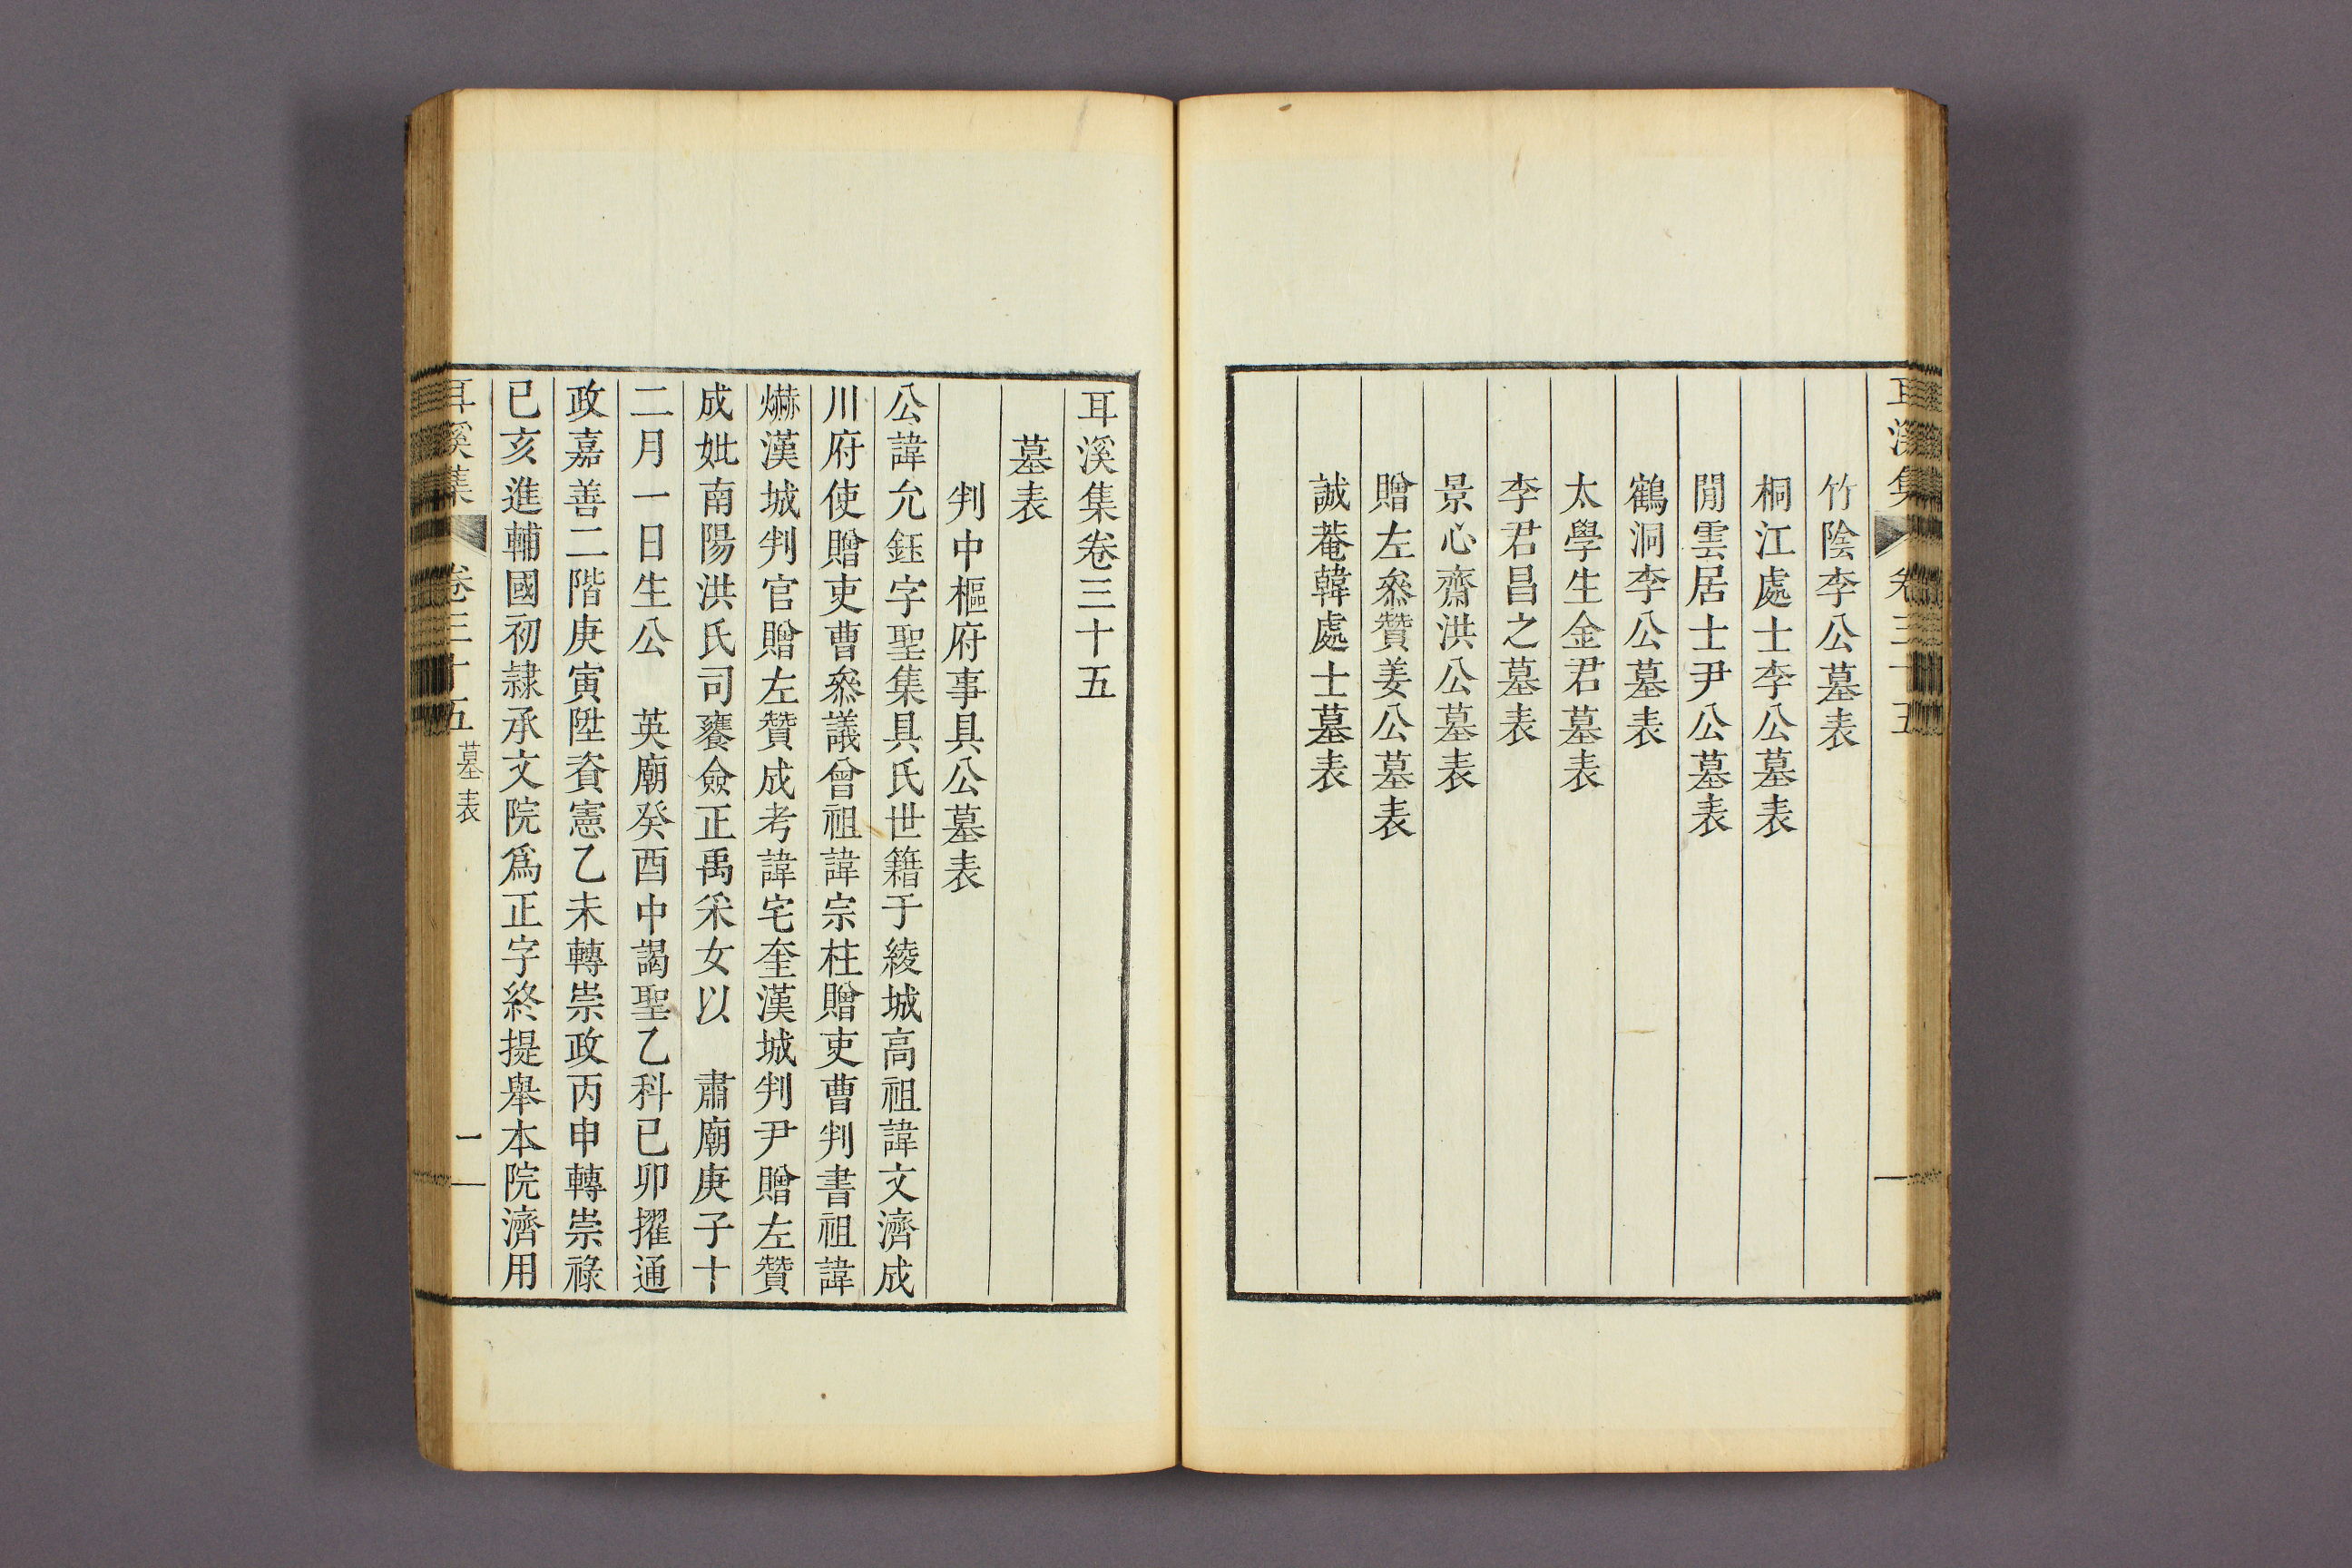 竹陰李公墓表
桐江處士李公墓表
閒雲居士尹公墓表
鶴洞李公墓表
太學生金君墓表
李君昌之墓表
景心齋洪公墓表
贈左叅贊姜公墓表
誠菴韓處士墓表
耳溪集卷三十五
墓表
判中樞府事具公墓表
公諱允鈺字聖集具氏世籍于綾城高祖諱文濟成
川府使贈吏曹叅議曾祖諱宗柱贈吏曹判書祖諱
爀漢城判官贈左贊成考諱宅奎漢城判尹贈左贊
成妣南陽洪氏司饔僉正禹采女以　肅廟庚子十
二月一日生公　英廟癸酉中謁聖乙科已卯擢通
政嘉善二階庚寅陞資憲乙未轉崇政丙申轉崇祿
已亥進輔國初隷承文院爲正字終提舉本院濟用
耳溪集　卷三十五　墓表　一